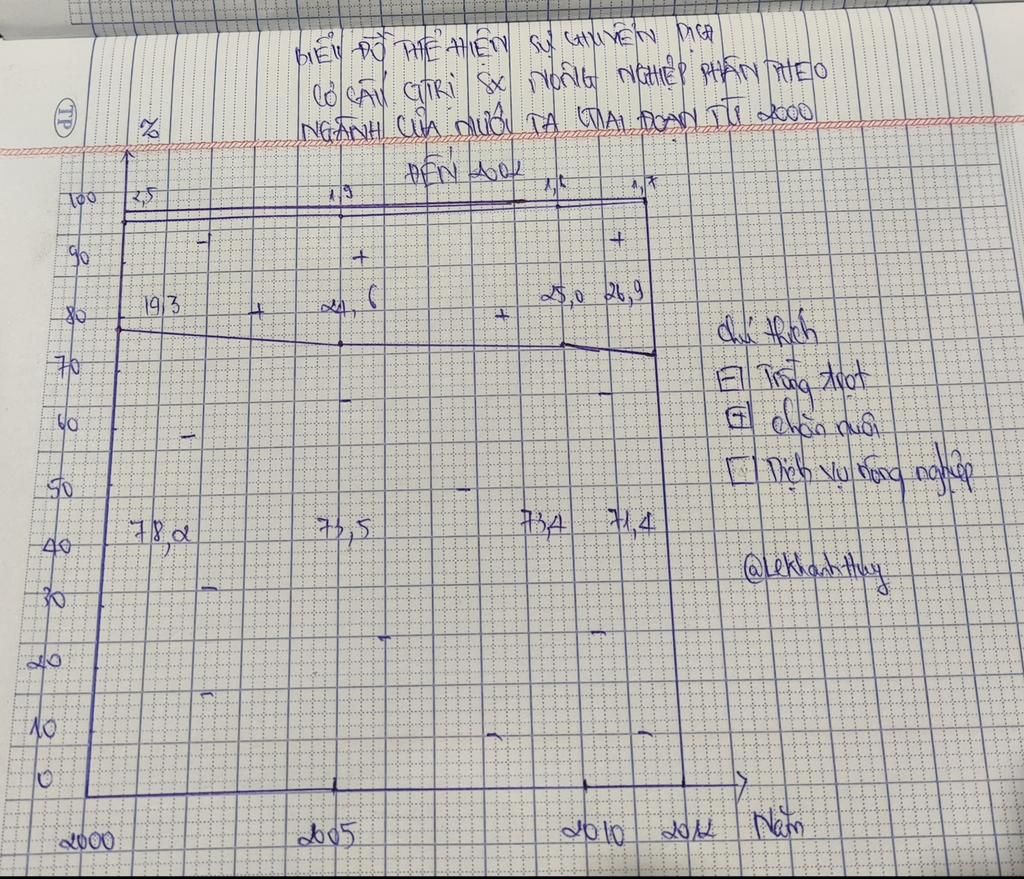 BIỂU ĐỒ THỂ HIỆN SỰ CHUYỂN DỊCH
CƠ CẤU GTRỊ SX NÔNG NGHIỆP PHÂN THEO
NGÀNH CỦA NƯỚC TA GIAI ĐOẠN TỪ 2000
ĐẾN 2002
TP
%
100
90
80
70
60
50
40
30
20
10
0
2,5 1,9 1,6 1,7
19,3 24,6 25,0 26,9
78,2 73,5 73,4 71,4
2000 2005 2010 2012 Năm
chú thích
Trồng trọt
chăn nuôi
Dịch vụ nông nghiệp
@LeKhanhHuy